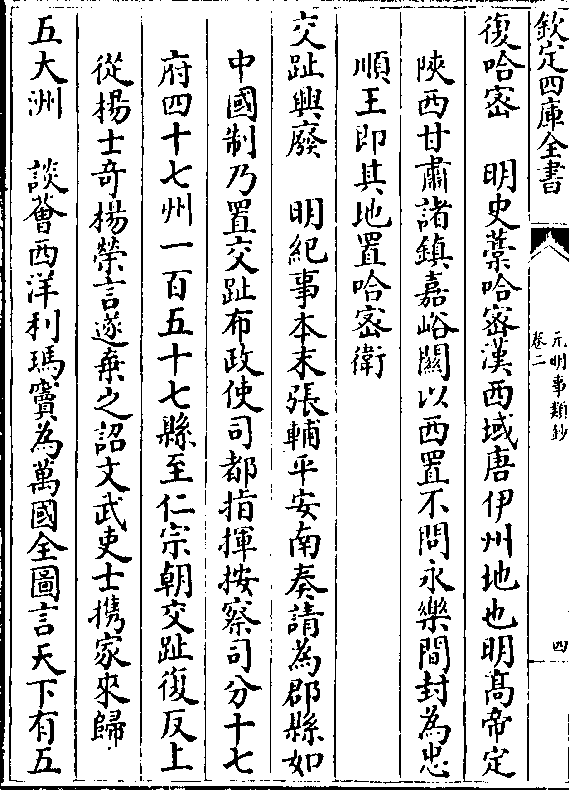 欽定四庫全書
元明事類鈔
卷二
四
復哈密　明史藁哈密漢西域唐伊州地也明髙帝定
陜西甘肅諸鎮嘉峪關以西置不問永樂間封為忠
順王即其地置哈密衛
交趾興廢　明紀事本末張輔平安南奏請為郡縣如
中國制乃置交趾布政使司都指揮按察司分十七
府四十七州一百五十七縣至仁宗朝交趾復反上
從楊士竒楊榮言遂棄之詔文武吏士携家來歸
五大洲　談薈西洋利瑪竇為萬國全圖言天下有五